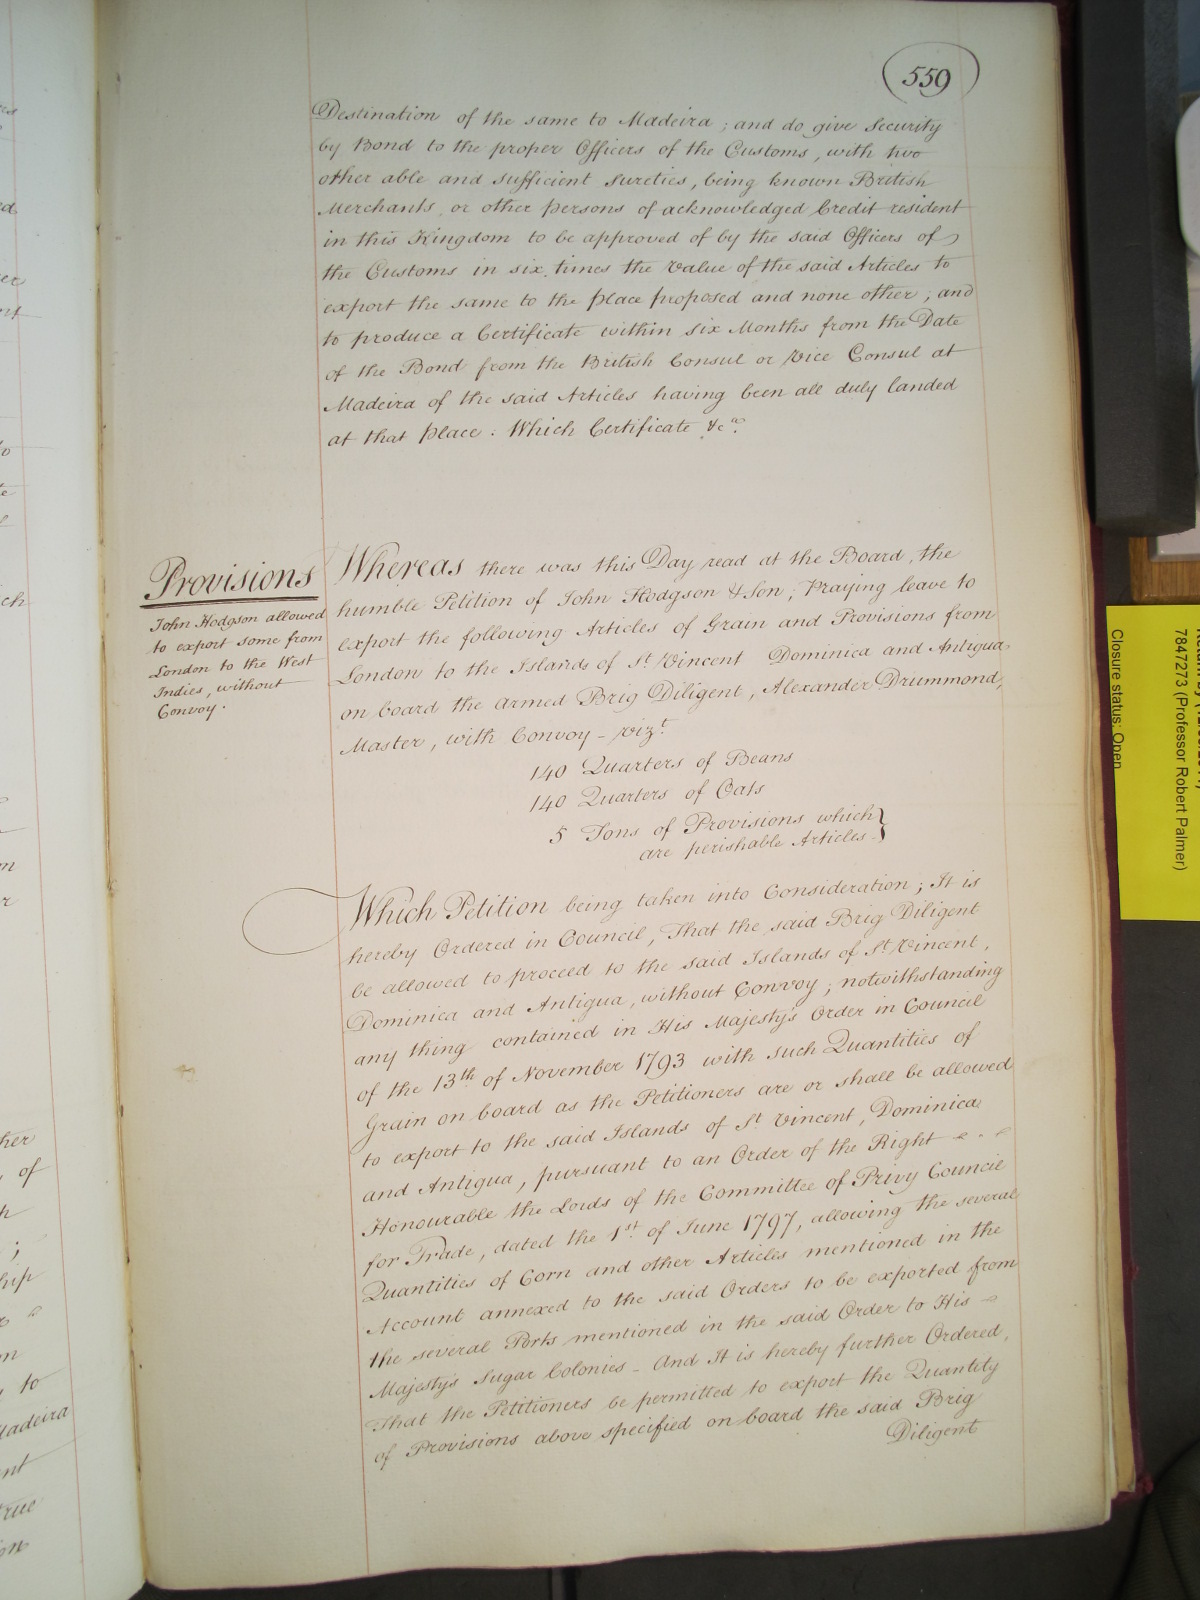 559
Destination of the same to Madeira ; and do give Security
by Bond to the proper Officers of the Customs, with two
other able and sufficient Sureties, being known British
Merchants, or other persons of acknowledged Credit resident
in this Kingdom to be approved of by the said Officers of
the Customs in six times the value of the said Articles to
export the same to the Place proposed and none other ; and
to produce a Certificate within six Months from the Date
of the Bond from the British Consul or Vice Consul at
Madeira of the said Articles having been all duly landed
at that Place . Which Certificate &ca.
Provisions
John Hodgson allowed
to export some from
London to the West
Indies, without
Convoy.
Whereas there was this Day read at the Board, the
humble Petition of John Hodgson & Son, Praying leave to
export the following Articles of Grain and Provisions from
London to the Islands of St Vincent Dominica and Antigua
on board the armed Brig Diligent, Alexander Drummond,
Master, with Convoy – vizt.
140 Quarters of Beans
140 Quarters of Oats
5 Tons of Provisions which
are perishable Articles -
Which Petition being taken into Consideration ; It is
hereby Ordered in Council, That the said Brig Diligent
be allowed to proceed to the said Islands of St Vincent,
Dominica and Antigua, without Convoy ; notwithstanding
any thing contained in His Majesty's Order in Council
of the 13th of November 1793 with such Quantities of
Grain on board as the Petitioners are or shall be allowed
to export to the said Islands of St Vincent, Dominica
and Antigua, pursuant to an Order of the Right
Honourable the Lords of the Committee of Privy Council
for Trade, dated the 1st of June 1797, allowing the several
Quantities of Corn and other Articles mentioned in the
Account annexed to the said Orders to be exported from
the several Ports mentioned in the said Order to His
Majesty's Sugar Colonies – And It is hereby further Ordered,
That the Petitioners be permitted to export the Quantity
of Provisions above specified on board the said Brig
Diligent
7847273 (Professor Robert Palmer)
Closure status: Open